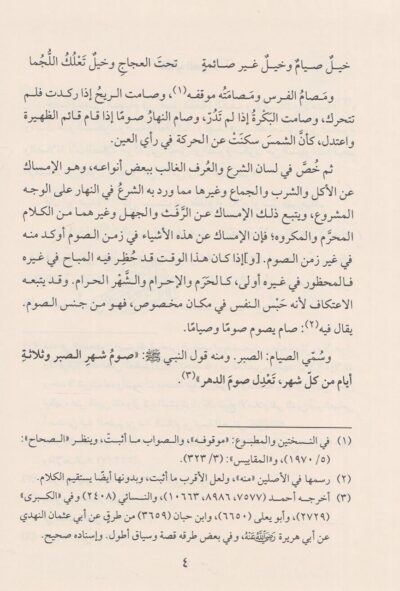 خيلٌ صيامٌ وخيلٌ غير صائمةٍ تحتَ العجاجِ وخيلٌ تَعْلُكُ اللُّجُما
ومَصامُ الفرس ومَصامَتُه موقفه(١)، وصامت الريحُ إذا ركدت فلم
تتحرك، وصامت البَكْرةُ إذا لم تَدُرْ، وصام النهارُ صومًا إذا قام قائم الظهيرة
واعتدل، كأنَّ الشمسَ سكنَتْ عن الحركة في رأي العين.
ثم خُصَّ في لسان الشرع والعُرف الغالب ببعض أنواعه، وهو الإمساك
عن الأكل والشرب والجماع وغيرها مما ورد به الشرعُ في النهار على الوجه
المشروع، ويتبع ذلك الإمساك عن الرَّفَث والجهل وغيرهما من الكلام
المحرَّم والمكروه؛ فإن الإمساك عن هذه الأشياء في زمن الصوم أوكد منه
في غير زمن الصوم. [و]إذا كان هذا الوقت قد حُظِر فيه المباح في غيره
فالمحظور في غيره أولى، كالحَرَم والإحرام والشَّهْر الحرام. وقد يتبعه
الاعتكاف لأنه حَبْس النفس في مكان مخصوص، فهو من جنس الصوم.
يقال فيه(٢): صام يصوم صومًا وصيامًا.
وسُمِّي الصيام: الصبر. ومنه قول النبي ﷺ: «صومُ شهرِ الصبر وثلاثةِ
أيام من كلِّ شهر، تَعْدِل صومَ الدهر»(٣).
(١) في النسختين والمطبوع: «موقوفه»، والصواب ما أثبتُّ، وينظر «الصحاح»:
(٥/ ١٩٧٠)، و«المقاييس»: (٣/ ٣٢٣).
(٢) رسمها في الأصلين «منه»، ولعل الأقرب ما أثبت، وبدونها أيضًا يستقيم الكلام.
(٣) أخرجه أحمد (٧٥٧٧، ٨٩٨٦، ١٠٦٦٣)، والنسائي (٢٤٠٨) وفي «الكبرى»
(٢٧٢٩)، وأبو يعلى (٦٦٥٠)، وابن حبان (٣٦٥٩) من طرقٍ عن أبي عثمان النهدي
عن أبي هريرة رَضِيَ اللَّهُ عَنْهُ، وفي بعض طرقه قصة وسياق أطول. وإسناده صحيح.
٤